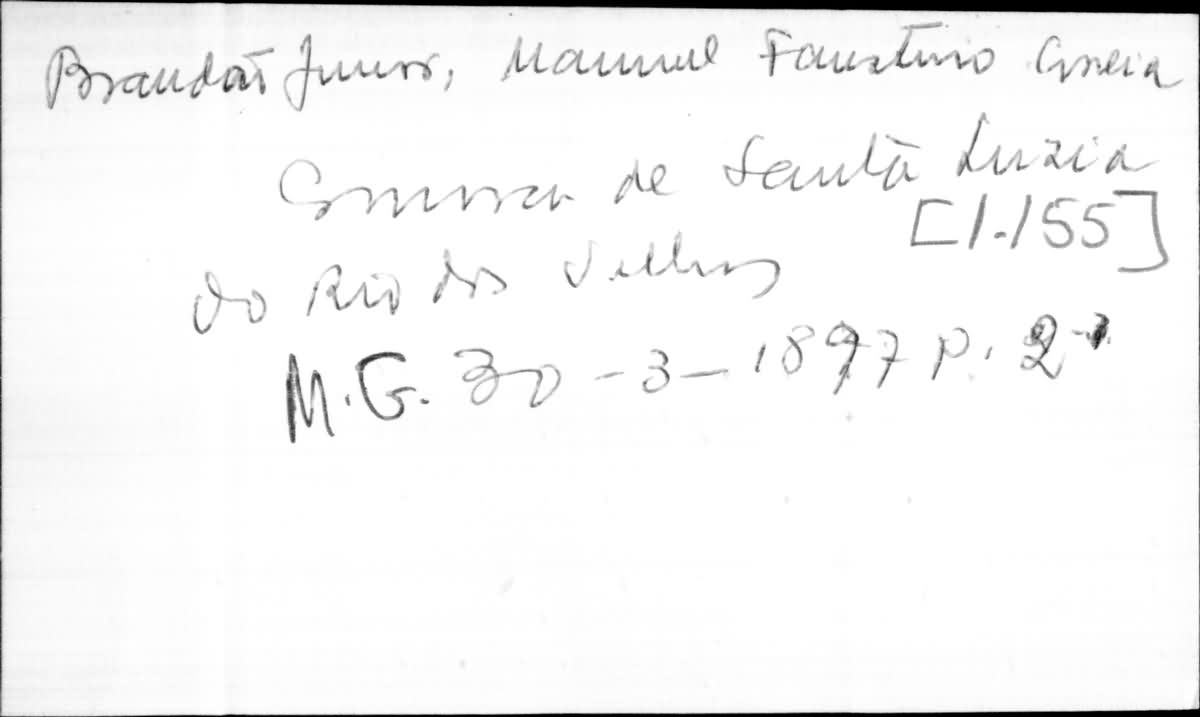 Brandão Junior, Manuel Faustino Correia
Comarca de Santa Luzia
[1.155]
do Rio das Velhas
M.G. 30-3-1897 p. 2